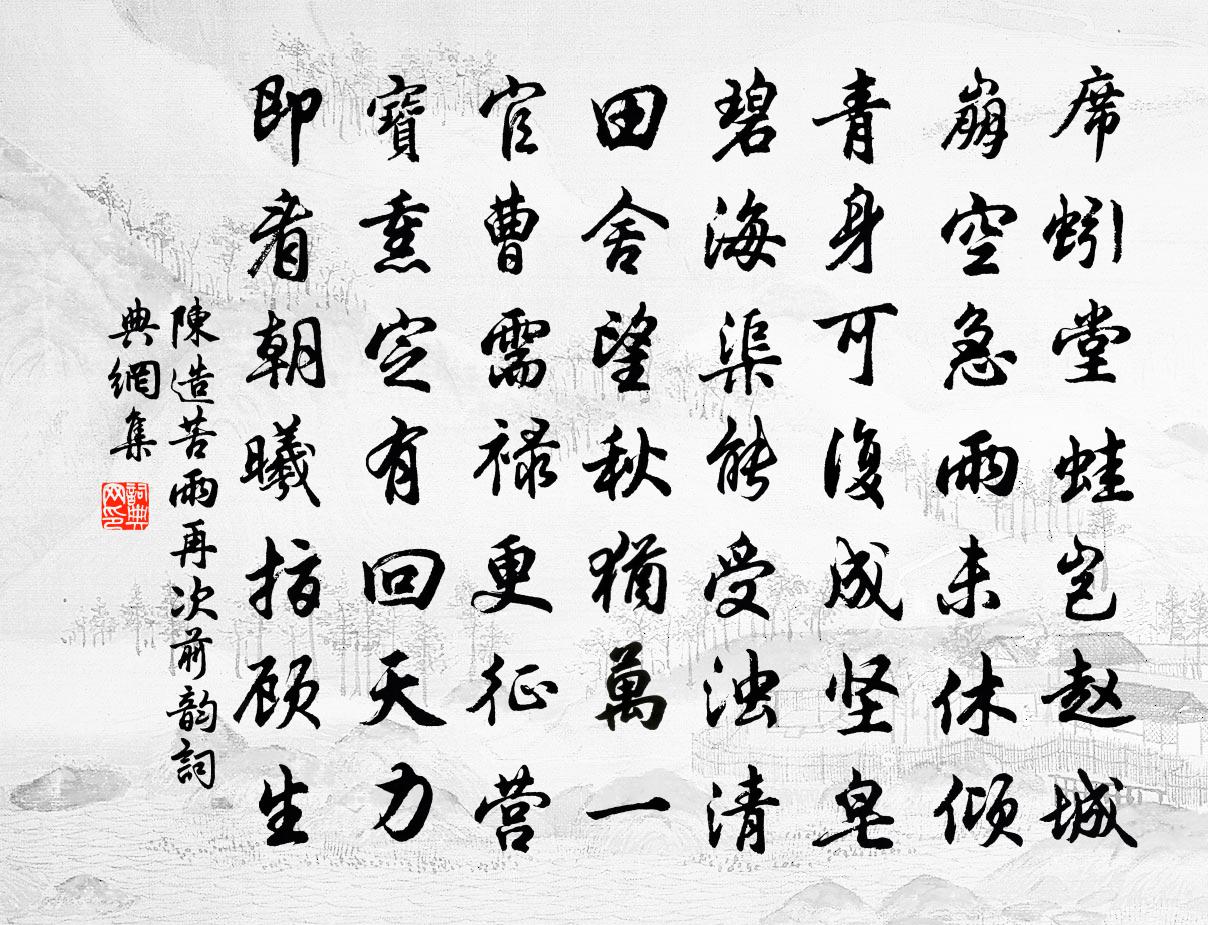 席蚓堂蛙岂赵城
崩空急雨未休倾
青身可復成坚皂
碧海渠能受浊清
田舍望秋猶萬一
官曹需禄更征营
寶熏定有回天力
即看朝曦指顾生
陳造苦雨再次前韵詞
典網集
詞典網印